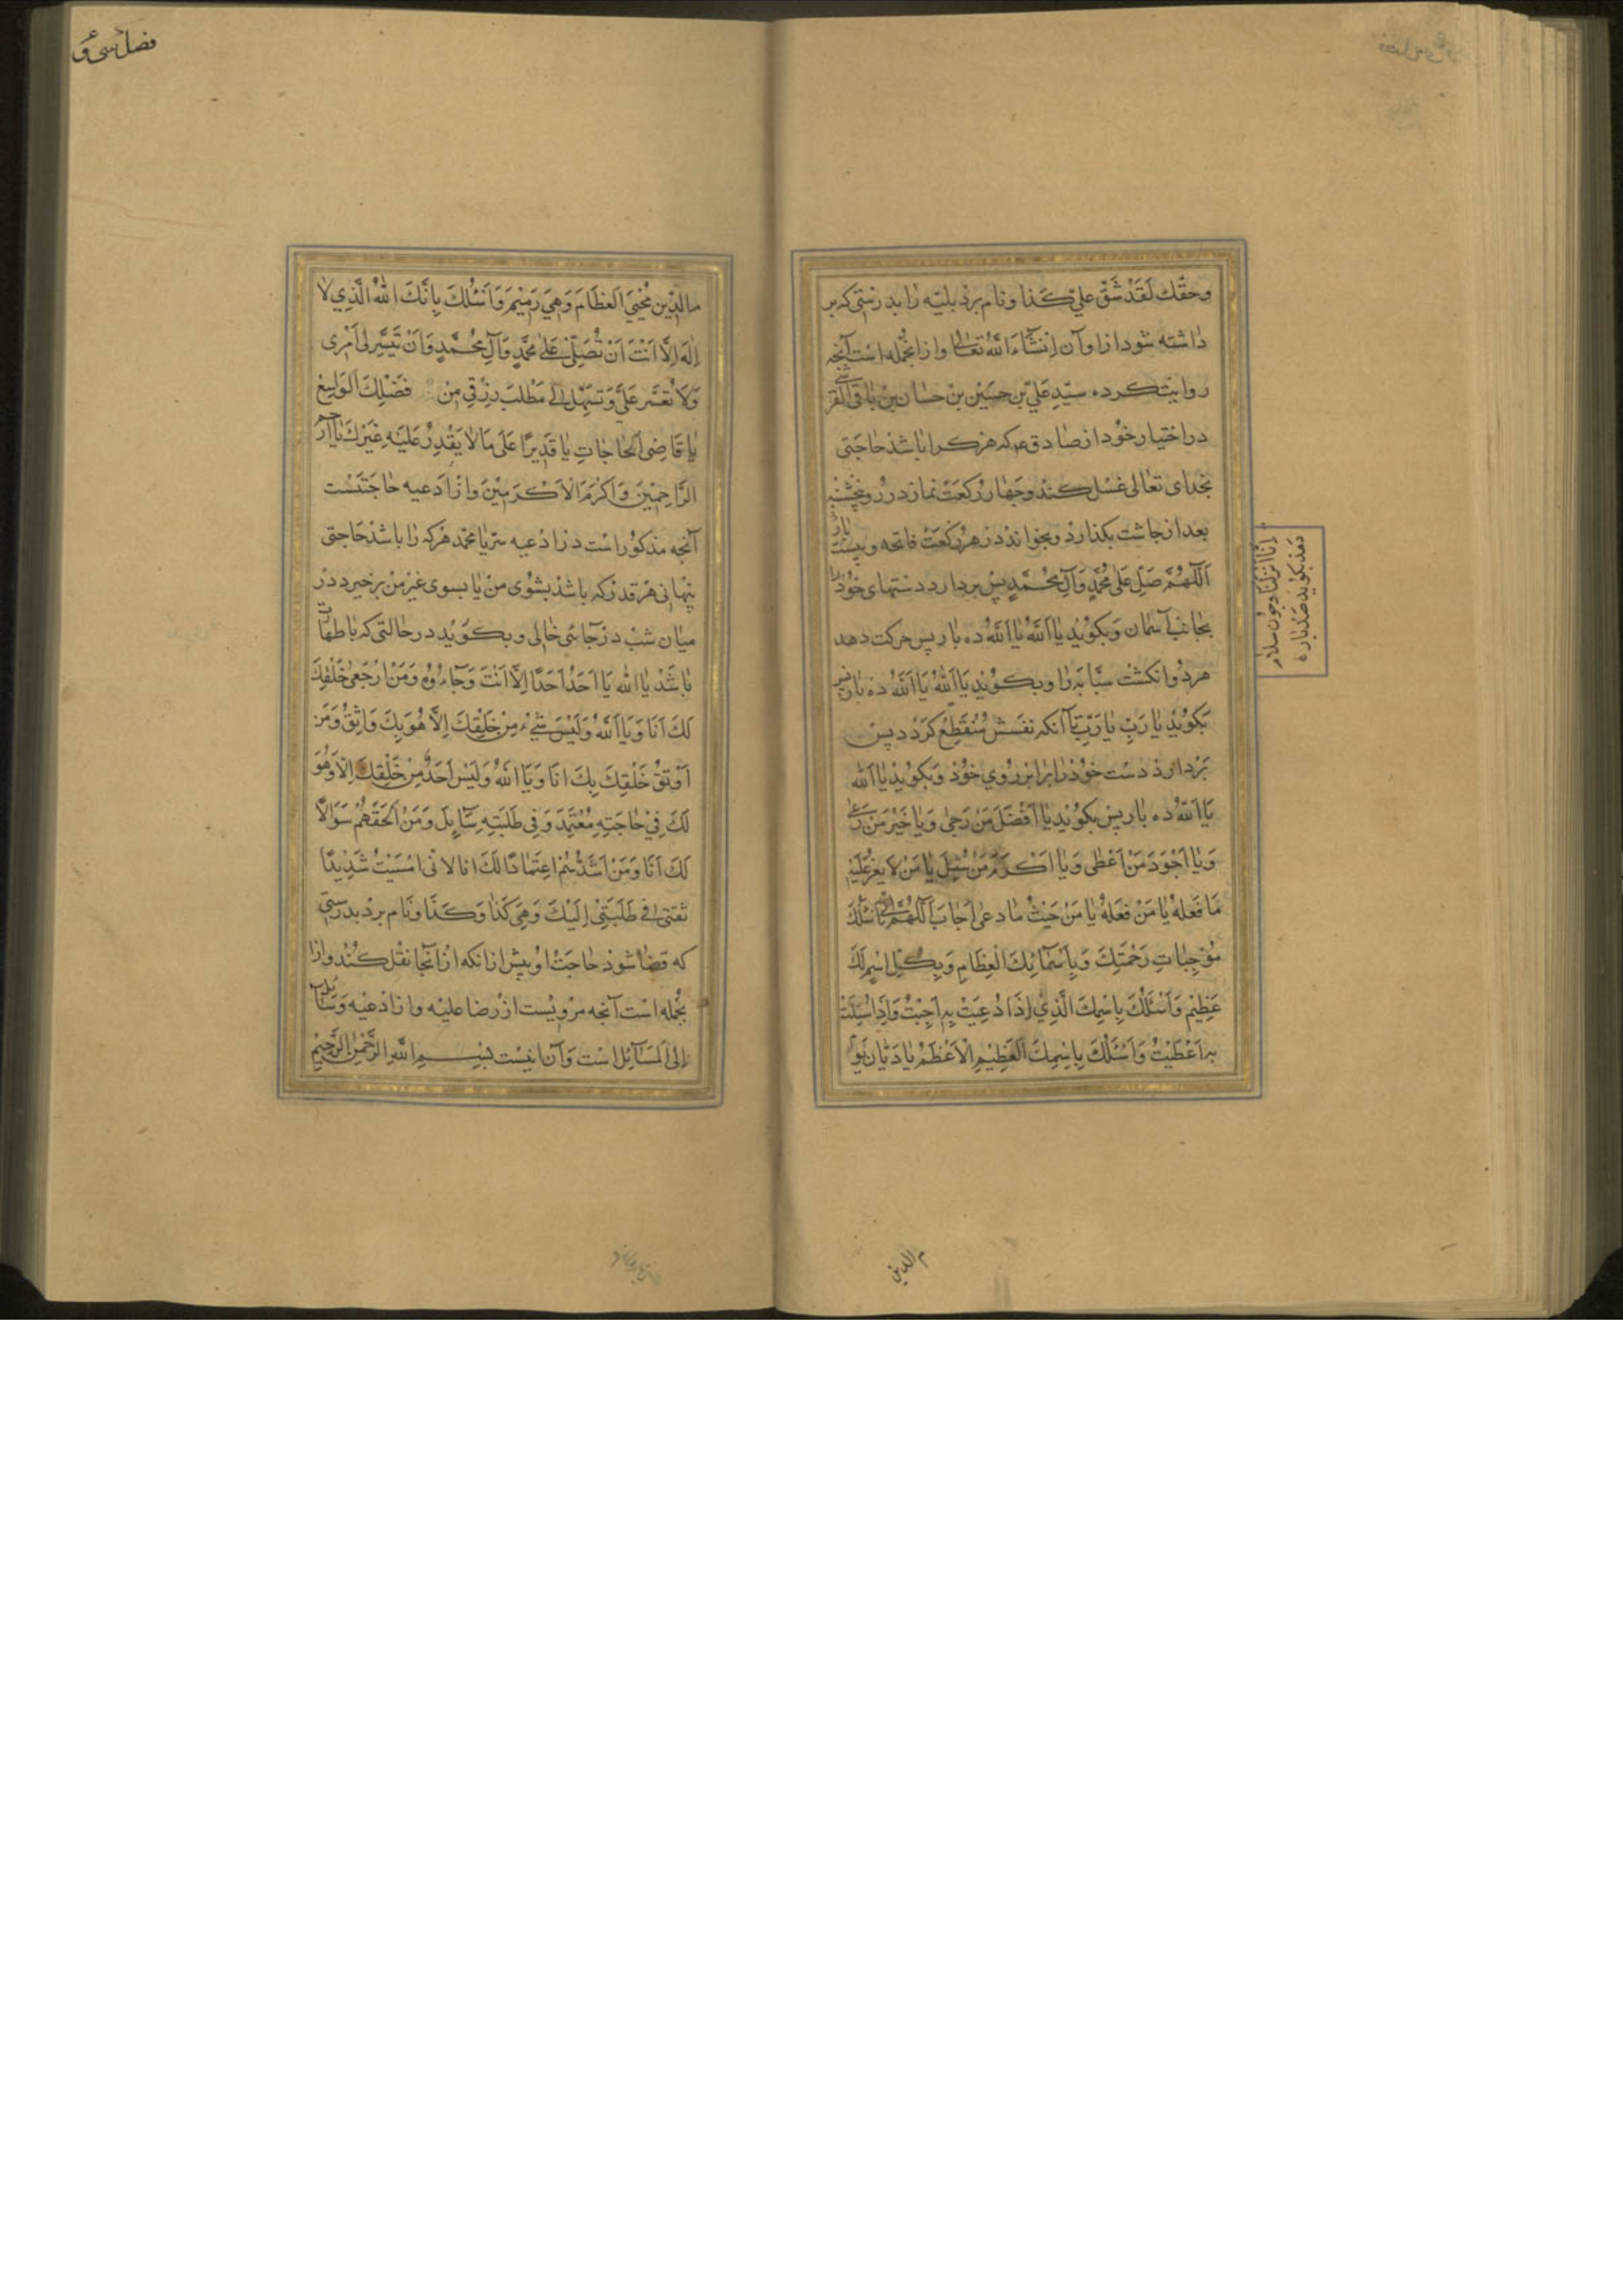 وحقّك لَقَدْ شَقَّ علیّ کَذا ونام برد بلیّه را بدرستی که بر
داشته شود ازاو آن انشاء الله تعالی وازانجمله است آنچه
روایت کرده سیّد علیّ بن حسین بن حسان بن باقی القرشی
در اختیار خود از صادق ع که هر کرا باشد حاجتی
بخدای تعالی غسل کند وچهار رکعت نماز در روز پنجشنبه
بعد از چاشت بکذارد وبخواند در هر رکعت فاتحه وبیست بار
اَللّهُمَّ صَلِّ عَلی مُحَمَّدٍ وَآلِ مُحَمَّدٍ پس بردارد دستهای خود را
بجانب آسمان وبکوید یا اَللّهُ یا اَللّهُ ده بار پس حرکت دهد
هر دو انکشت سبّابه را وبکوید یا اَللّهُ یا اَللّهُ ده بار پس
بکوید یا رَبِّ یا رَبِّ تا آنکه نفسش منقطع کردد پس
بردارد دست خود را برابر روی خود وبکوید یا الله
یا اَللّهُ ده بار پس بکوید یا اَفْضَلَ مَنْ رَجی وَیا خَیْرَ مَنْ
وَیا اَجْوَدَ مَنْ اَعْطی وَیا اَکْرَمَ مَنْ سُئِلَ یا مَنْ لا یَعُزُّ عَلَیْهِ
مَا فَعَلهُ یا مَنْ فَعَلهُ یا مَنْ حَیْثُ مادعی اَجابَ اَللّهُمَّ اِنّی اَسْئَلُكَ
مُوْجِباتِ رَحْمَتِكَ وَبِاَسْمائِكَ الْعِظَامِ وَبِکُلِّ اسْمٍ لَكَ
عَظِیْمٍ وَاَسْئَلُكَ بِاِسْمِكَ الَّذِيْ اِذَا دُعِیْتَ بِهِ اَجَبْتَ وَاِذَا سُئِلْتَ
بِهِ اَعْطَیْتَ وَاَسْئَلُكَ بِاِسْمِكَ الْعَظِیْمِ الْاَعْظَمِ یا دَیّان یَوْ
اِنّا انزلنا وچون سلام
دهد بکوید صد باره
م الدین
فصل سی و
ما لدّین مُحْیِيَ الْعِظَامَ وَهِيَ رَمِیْمٌ وَاَسْئَلُكَ بِاَنَّكَ اللّهُ الَّذِي لا
اِلهَ اِلَّا اَنْتَ اَنْ تُصَلِّيَ عَلی مُحَمَّدٍ وَآلِ مُحَمَّدٍ وَاَنْ تُیَسِّرَ لی اَمْری
وَلا تُعَسِّر عَلَيَّ وَتُسَهِّلَ لي مَطْلَبَ رِزْقِي مِنْ فَضْلِكَ الْوَاسِعِ
یا قَاضِیَ الْحَاجَاتِ یا قَدِیْرًا عَلی مَا لا یَقْدِرُ عَلَیْهِ غَیْرُكَ یا اَرْحَمَ
الرَّاحِمِیْنَ وَاَکْرَمَ الْاَکْرَمِیْنَ وازادعیه حاجتست
آنچه مذکور است در ادعیه سرّ یا محمّد هر که را باشد حاجتی
پنهانی هر قدر که باشد بسوی من یا بسوی غیر من برخیرد در
میان شب در جائی خالی وبکوید در حالتی که با طهارت
باشد یا الله یا اَحَدُ اَحَدًا اِلَّا اَنْتَ وَجاءوه وَمَنْ اَرْجَعی خَلْقِكَ
لَكَ اَنَا وَیا اَللّهُ وَلَیْسَ شَيْءٌ مِنْ خَلْقِكَ اِلَّا هُوَ بِكَ وَاثِقٌ وَمَنْ
اَوْثَقُ خَلْقِكَ بِكَ اَنَا وَیا اَللّهُ وَلَیْسَ اَحَدٌ مِنْ خَلْقِكَ اِلَّا وَهُوَ
لَكَ فِيْ حَاجَتِهِ مُعْتَمِدٌ وَفِي طَلِبَتِهِ سَائِلٌ وَمَنْ اَلْحَقَهُمْ سَوَالًا
لَكَ اَنَا وَمَنْ اَشَدُّهُمْ اِعْتِمَادًا لَكَ انا لانی اَمْسَیْتُ شَدِیْدًا
ثقتی فِي طَلِبَتِيْ اِلَیْكَ وَهِيَ کَذَا وَکَذَا ونام برد بدرستی
که قضا شود حاجت او پیش ازانکه ازآنجا نقل کند وازا
نجمله است آنچه مرویست از رضا علیه وازادعیه وسائل
اِلَی الْمَسَآئِل است وآن اینست بِسْمِ اللهِ الرَّحْمنِ الرَّحِیْمِ